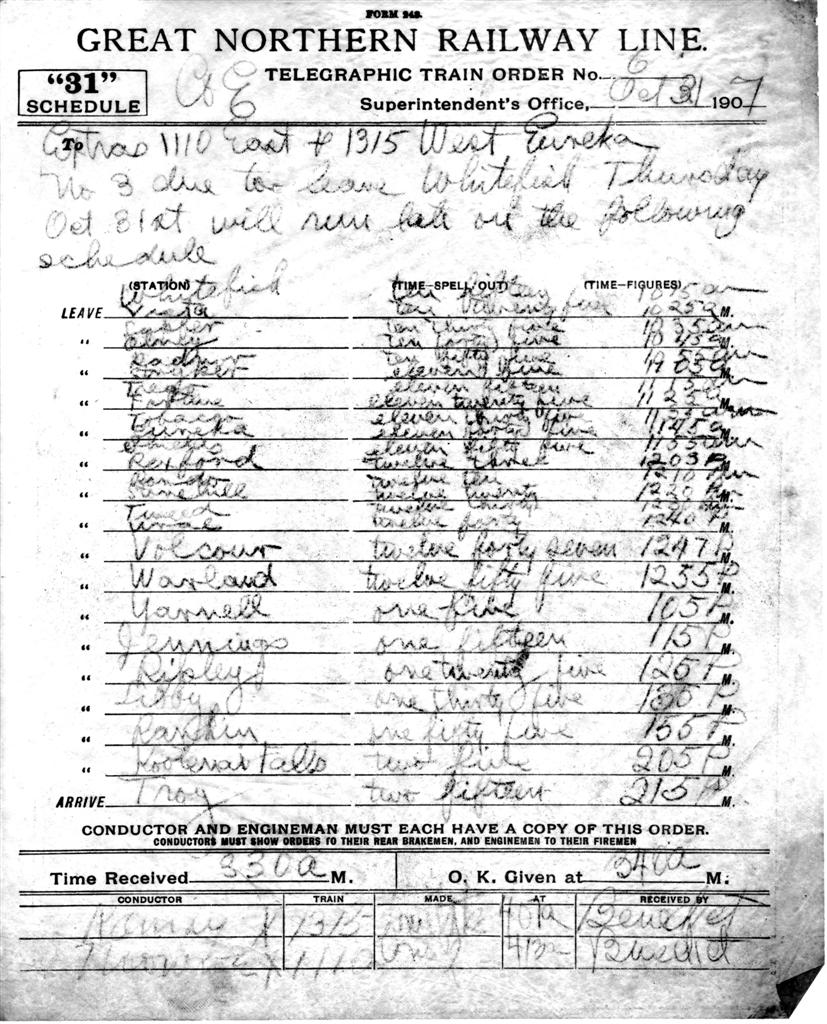 FORM 242.
GREAT NORTHERN RAILWAY LINE.
"31"
SCHEDULE
TELEGRAPHIC TRAIN ORDER No. 6
Superintendent's Office, Oct 31 1907
To Extras 1110 East & 1315 West Eureka
No 3 due to leave Whitefish Thursday
Oct 31st will run late on the following
schedule
(STATION) (TIME—SPELL OUT) (TIME—FIGURES)
Whitefish ten fifteen 1015 am
LEAVE Vista ten twenty five 1025 a M.
ten thirty five 1035 am
" Olney ten forty five 1045 a M.
Radnor ten fifty five 1055 am
" Stryker eleven five 1105 a M.
Trego eleven fifteen 1115 am
" Fortine eleven twenty five 1125 a M.
Tobacco eleven thirty five 1135 am
" Eureka eleven forty five 1145 a M.
eleven fifty five 1155 am
" Rexford twelve three 1203 P M.
twelve ten 1210 Pm
" Stonehill twelve twenty 1220 P M.
Tweed twelve thirty 1230 pm
" Ural twelve forty 1240 P M.
" Volcour twelve forty seven 1247 P M.
" Warland twelve fifty five 1255 P M.
" Yarnell one five 105 P M.
" Jennings one fifteen 115 P M.
" Ripley one twenty five 125 P M.
" Libby one thirty five 135 P M.
" Rankin one fifty five 155 P M.
" Kootenai Falls two five 205 P M.
ARRIVE Troy two fifteen 215 P M.
CONDUCTOR AND ENGINEMAN MUST EACH HAVE A COPY OF THIS ORDER.
CONDUCTORS MUST SHOW ORDERS TO THEIR REAR BRAKEMEN, AND ENGINEMEN TO THEIR FIREMEN
Time Received 330 a M. O. K. Given at 340 a M.
CONDUCTOR TRAIN MADE AT RECEIVED BY
1315 401a Benedict
1110 Benedict